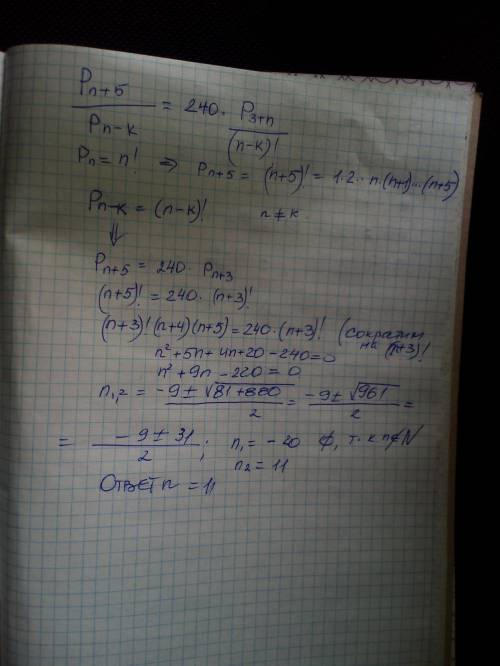 Pn+5 / Pn-k = 240 · P3+n / (n-k)!
Pn = n! ⇒ Pn+5 = (n+5)! = 1·2·· n·(n+1)··(n+5)
Pn-k = (n-k)! n ≠ k
⇓
Pn+5 = 240 · Pn+3
(n+5)! = 240 · (n+3)!
(n+3)! (n+4)(n+5) = 240 · (n+3)! (сократим на (n+3)!
n² + 5n + 4n + 20 - 240 = 0
n² + 9n - 220 = 0
n1,2 = -9 ± √81+880 / 2 = -9 ± √961 / 2 =
= -9 ± 31 / 2 ; n1 = -20 ∅, т.к n∉N
n2 = 11
Ответ n = 11